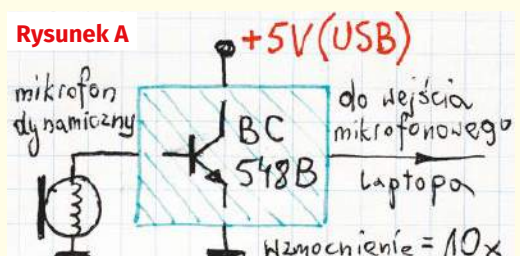 Rysunek A
+5V (USB)
mikrofon
dynamiczny
BC
548B
do wejścia
mikrofonowego
Laptopa
Wzmocnienie = 10x